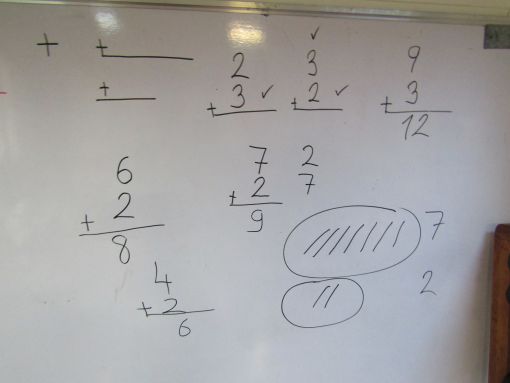 + +
+
2
+ 3 ✓
✓
3
+ 2 ✓
9
+ 3
12
6
+ 2
8
7
+ 2
9
2
7
4
+ 2
6
7
2